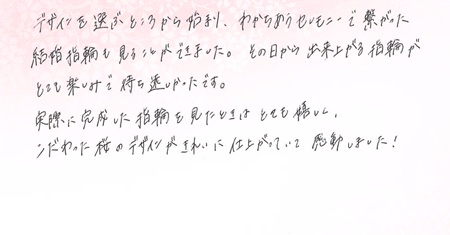 デザインを選ぶところから始まり、わかちあうセレモニーで繋がった
結婚指輪も見うことができました。その日から出来上がる指輪が
とても楽しみで待ち遠しかったです。
実際に完成した指輪を見たときはとても嬉しく、
こだわった桜のデザインがきれいに仕上がっていて感動しました！